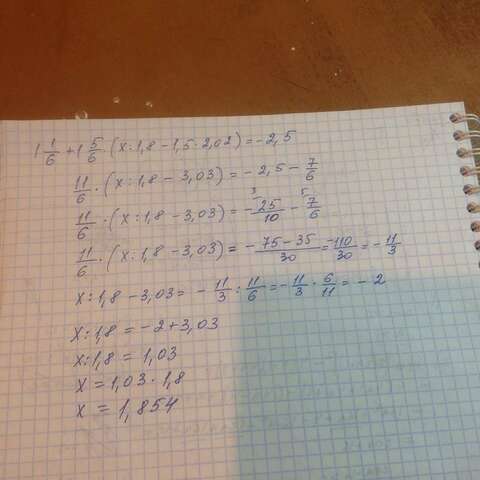 1 1/6 + 1 5/6 · (x : 1,8 - 1,5 · 2,02) = -2,5
11/6 · (x : 1,8 - 3,03) = -2,5 - 7/6
11/6 · (x : 1,8 - 3,03) = - 25/10 ³ - 7/6 ⁵
11/6 · (x : 1,8 - 3,03) = - 75 - 35/30 = -110/30 = - 11/3
x : 1,8 - 3,03 = - 11/3 : 11/6 = - 11/3 · 6/11 = - 2
x : 1,8 = -2 + 3,03
x : 1,8 = 1,03
x = 1,03 · 1,8
x = 1,854